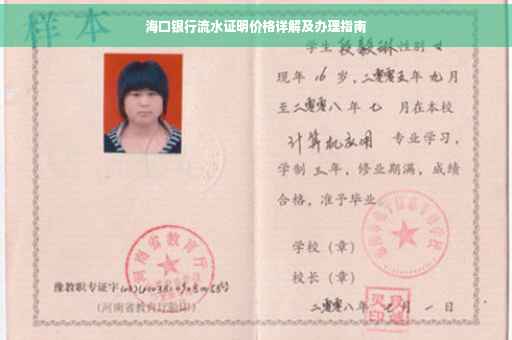 海口银行流水证明价格详解及办理指南
样本
学生段毅琳性别女
现年16岁,二零零五年九月
至二零零八年七 月在本校
计算机应用 专业学习,
学制三年,修业期满,成绩
合格,准予毕业。
学校(章)
校长(章)
二零零八年七月一日
河南省教育厅
豫教职专证字
(河南省教育厅验印)